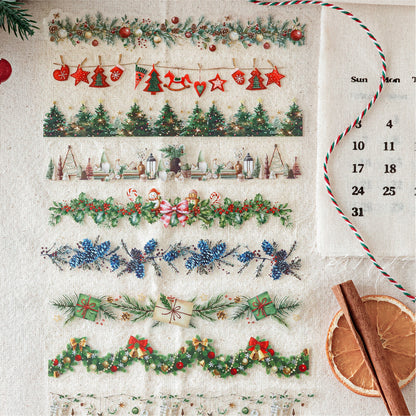 Sun Mon
3 4
10 11
17 18
24 25
31